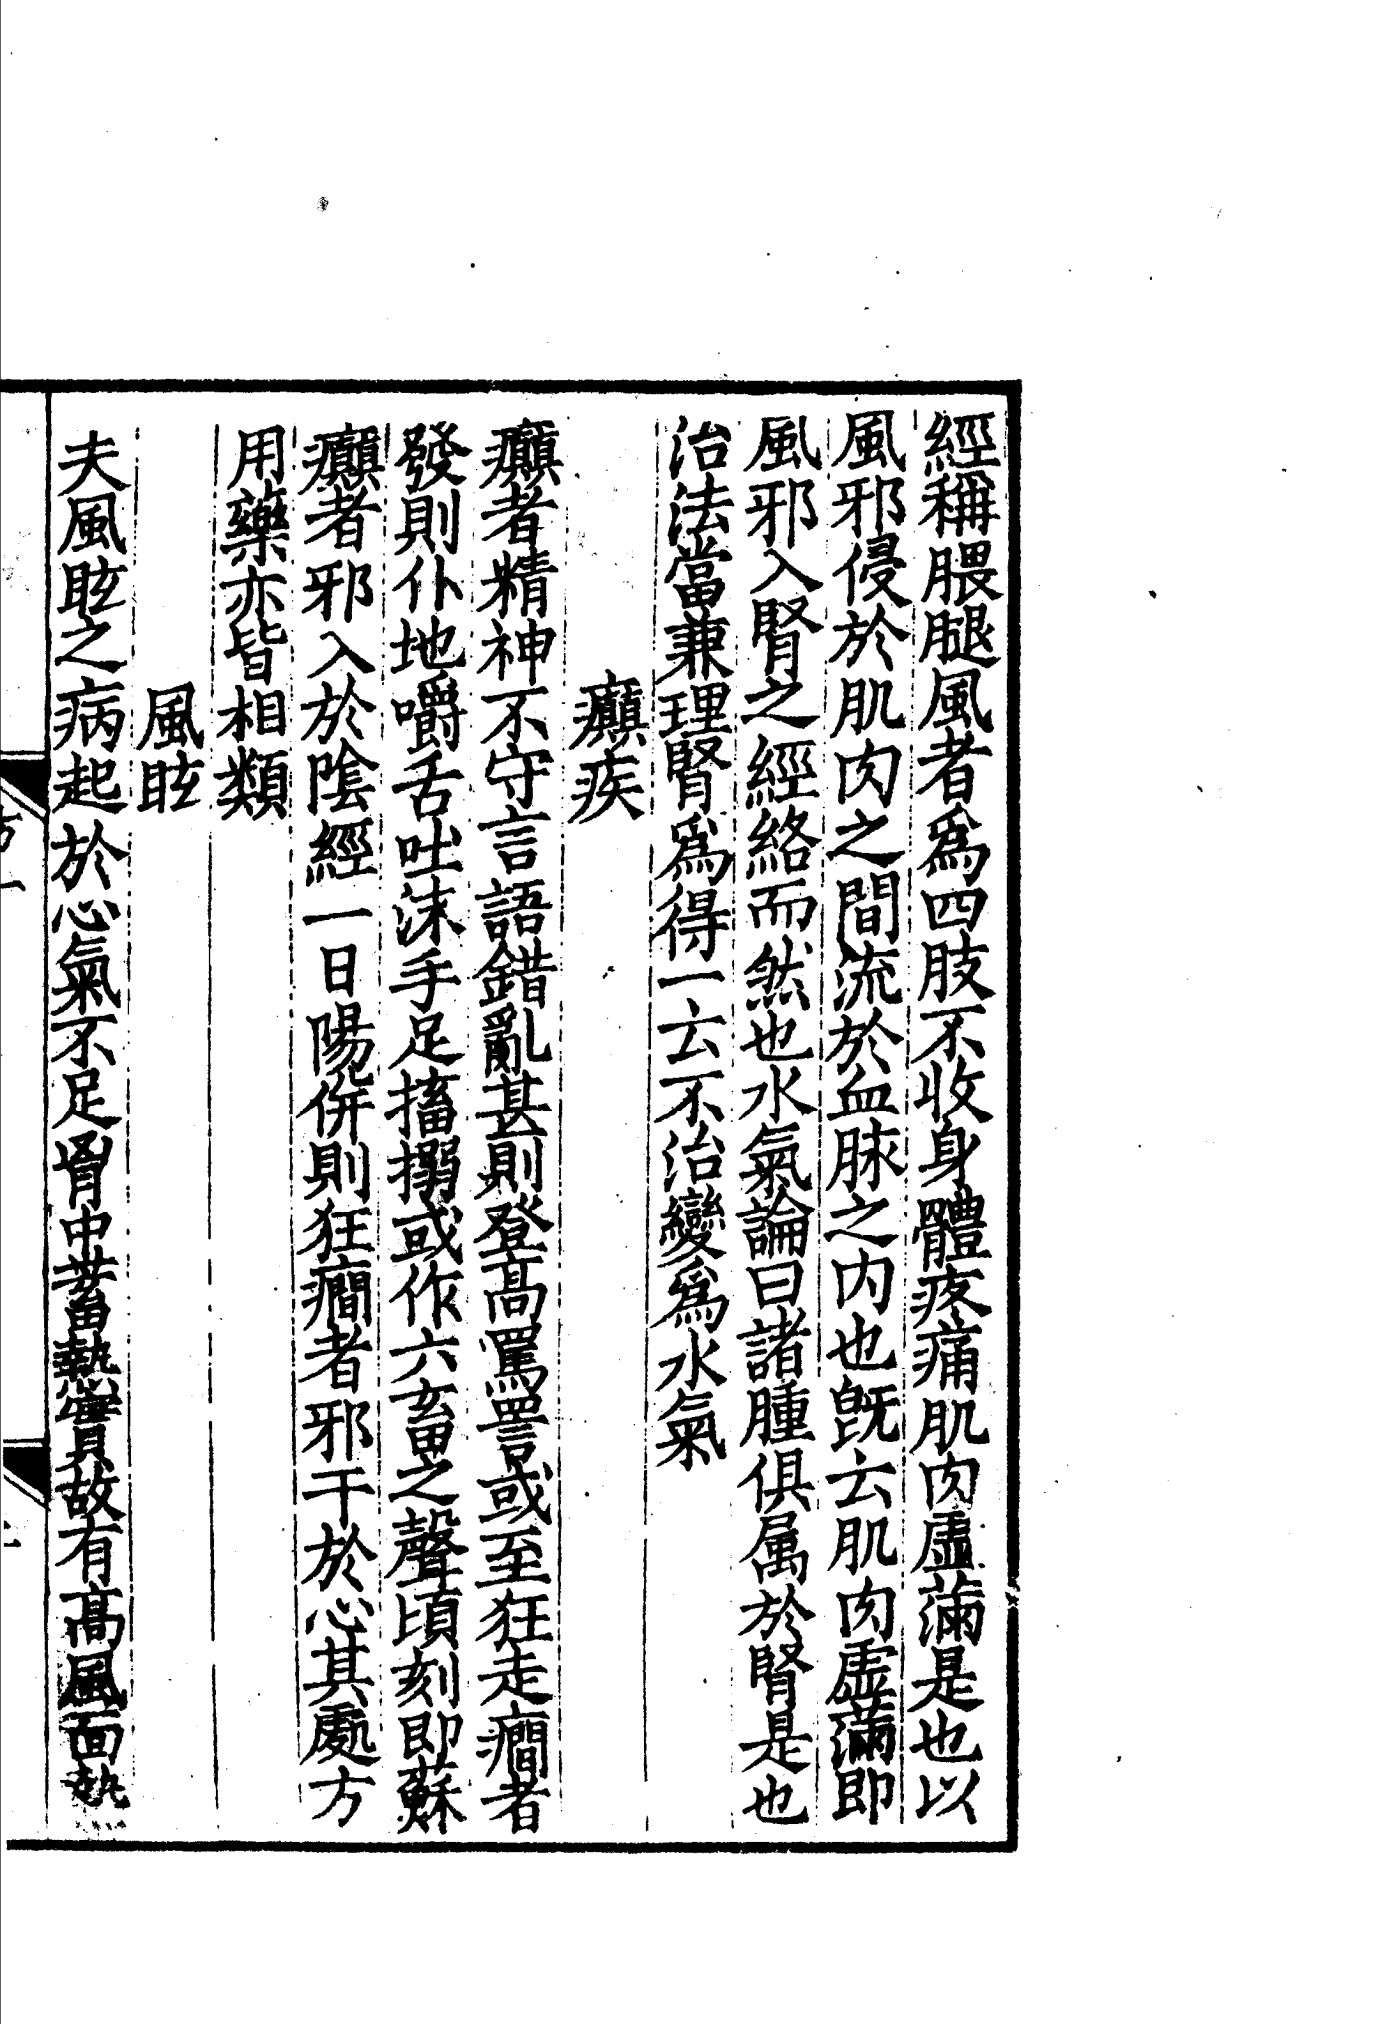 經稱腲腿風者爲四肢不收身體疼痛肌肉虛滿是也以
風邪侵於肌肉之間流於血脉之内也旣云肌肉虛滿即
風邪入腎之經絡而然也水氣論曰諸腫俱属於腎是也
治法當兼理腎爲得一云不治變爲水氣
癲疾
癲者精神不守言語錯亂甚則登髙罵詈或至狂走癎者
發則仆地嚼舌吐沫手足搐搦或作六畜之聲頃刻即蘇
癲者邪入於陰經一曰陽併則狂癎者邪干於心其處方
用藥亦皆相類
風眩
夫風眩之病起於心氣不足胷中蓄熱實故有髙風面熱